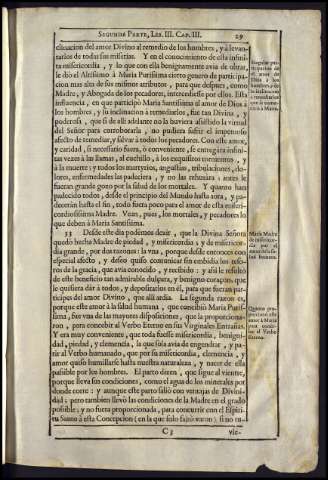 SEGUNDA PARTE, LIB. III. CAP. III. 29
clinacion del amor Divino al remedio de los hombres, y à levan-
tarlos de todas sus miserias. Y en el conocimiento de esta infini-
ta misericordia, y lo que con ella benignamente avia de obrar,
le diò el Altissimo à Maria Purissima cierto genero de participa-
cion mas alta de sus mismos atributos, para que despues, como
Madre, y Abogada de los pecadores, intercediesse por ellos. Esta
influencia, en que participò Maria Santissima al amor de Dios à
los hombres, y su inclinacion à remediarlos, fue tan Divina, y
poderosa, que si de alli adelante no la huviera assistido la virtud
del Señor para corroborarla, no pudiera sufrir el impetuoso
afecto de remediar, y salvar à todos los pecadores. Con este amor,
y caridad, si necessario fuera, ò conveniente, se entregàra infini-
tas vezes à las llamas, al cuchillo, à los exquisitos tormentos, y
à la muerte: y todos los martyrios, angustias, tribulaciones, do-
lores, enfermedades las padeciera, y no las rehusàra; antes le
fueran grande gozo por la salud de los mortales. Y quanto han
padecido todos, desde el principio del Mundo hasta aora, y pa-
deceràn hasta el fin, todo fuera poco para el amor de esta miseri-
cordiosissima Madre. Vean, pues, los mortales, y pecadores lo
que deben à Maria Santissima.
33 Desde este dia podemos dezir, que la Divina Señora
quedò hecha Madre de piedad, y misericordia; y de misericor-
dia grande, por dos razones: la vna, porque desde entonces con
especial afecto, y deseo quiso comunicar sin embidia los teso-
ros de la gracia, que avia conocido, y recibido: y assi le resultò
de este beneficio tan admirable dulçura, y benigno coraçon, que
le quisiera dàr à todos, y depositarlos en èl, para que fueran par-
ticipes del amor Divino, que alli ardia. La segunda razon es,
porque este amor à la salud humana, que concibiò Maria Puris-
sima, fue vna de las mayores disposiciones, que la proporciona-
ron, para concebir al Verbo Eterno en sus Virginales Entrañas.
Y era muy conveniente, que toda fuesse misericordia, benigni-
dad, piedad, y clemencia, la que sola avia de engendrar, y pa-
rir al Verbo humanado, que por su misericordia, clemencia, y
amor quiso humillarse hasta nuestra naturaleza, y nacer de ella
passible por los hombres. El parto dizen, que sigue al vientre,
porque lleva sus condiciones, como el agua de los minerales por
donde corre: y aunque este parto saliò con ventajas de Divini-
dad; pero tambien llevò las condiciones de la Madre en el grado
possible; y no fuera proporcionada, para concurrir con el Espiri-
tu Santo à esta Concepcion (en la que solo faltò varon) si no tu-
C 3 vie-
Maria Madre
de misericor-
dia por el